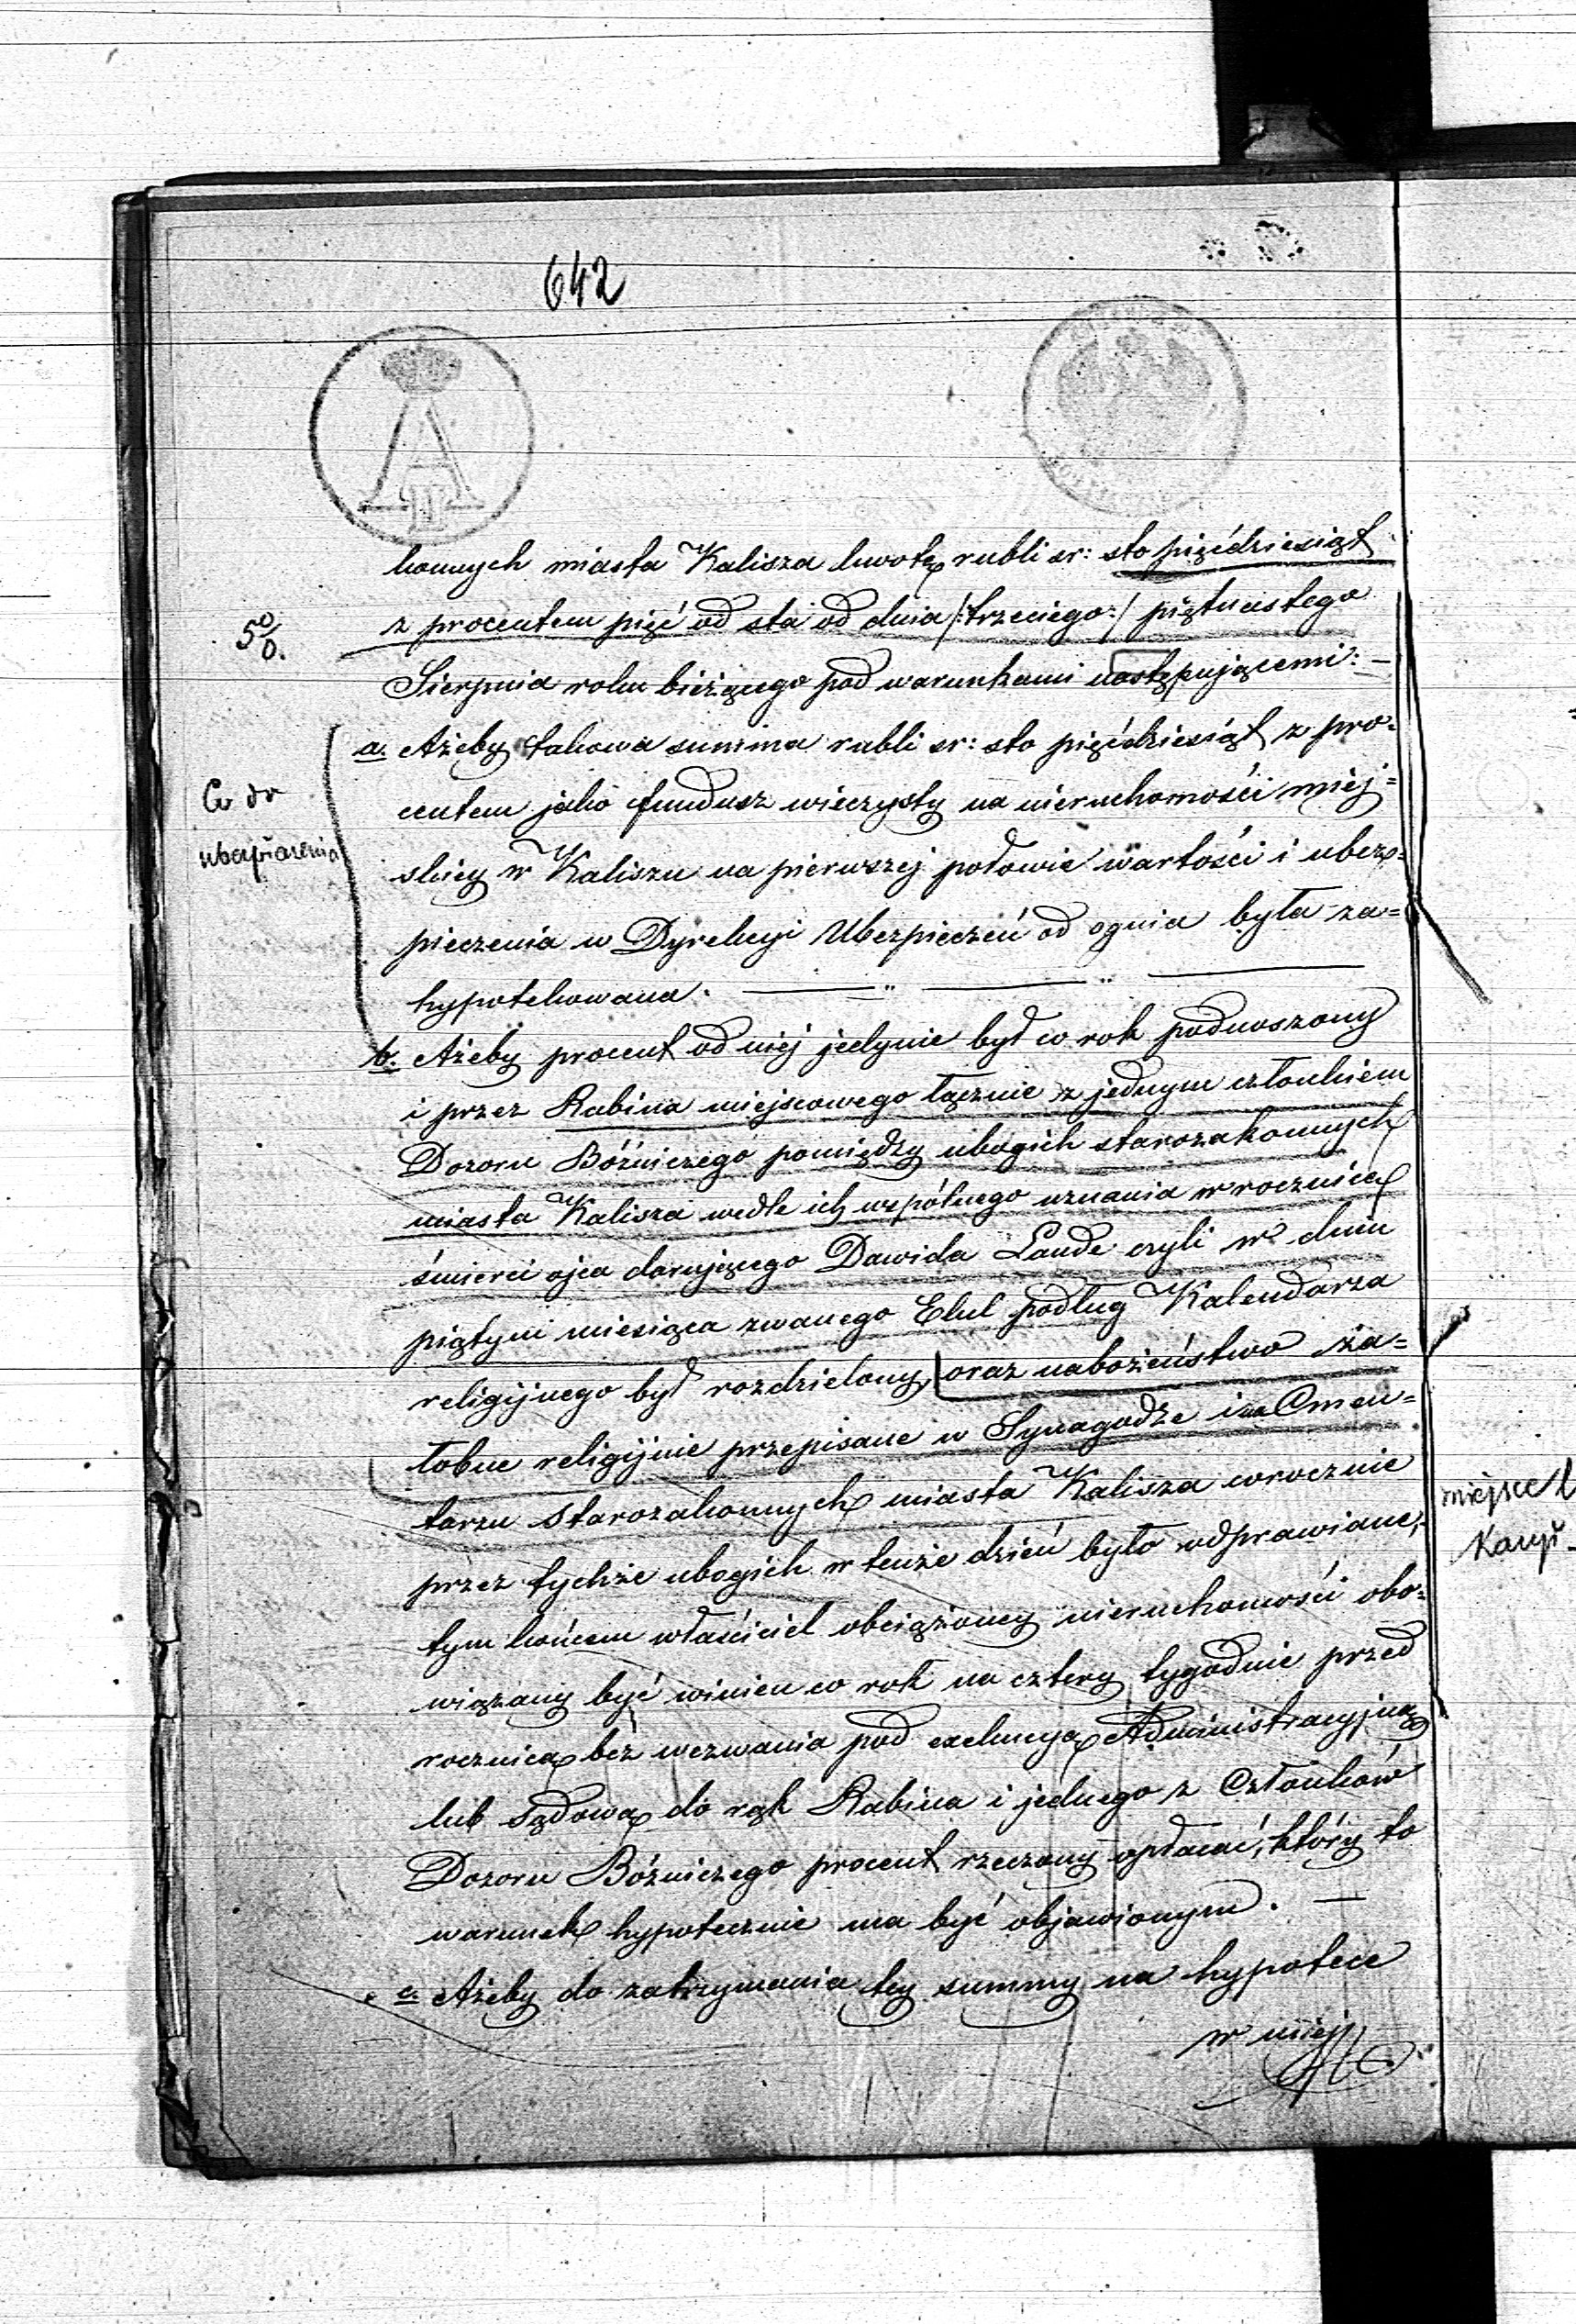 642
konnych miasta Kalisza kwotę rubli sr: sto pięćdziesiąt
5%.
z procentem pięć od sta od dnia /:trzeciego:/ piętnastego
Sierpnia roku bieżącego pod warunkami następującemi: —
a. Ażeby takowa summa rubli sr: sto pięćdziesiąt z pro-
Co do
ubezpieczenia
centem jako fundusz wieczysty na nieruchomości miej=
skiey w Kaliszu na pierwszej połowie wartości i ubez=
pieczenia w Dyrekcyi Ubezpieczeń od ognia była za=
hypotekowana. — „ — „ —
b. Ażeby procent od niej jedynie był co rok podnoszony
i przez Rabina miejscowego łącznie z jednym członkiem
Dozoru Bóźniczego pomiędzy ubogich starozakonnych
miasta Kalisza wedle ich wspólnego uznania w rocznicę
śmierci ojca darującego Dawida Laude czyli w dniu
piątym miesiąca zwanego Elul podług Kalendarza
religijnego był rozdzielony, oraz nabożeństwo ża=
łobne religijnie przepisane w Synagodze i na Cmen=
tarzu starozakonnych miasta Kalisza corocznie
miejsce
przez tychże ubogich w tenże dzień było odprawiane,
tym końcem właściciel obciążoney nieruchomości obo=
wiązany być winien co rok na cztery tygodnie przed
rocznicą bez wezwania pod exekucyą Administracyjną
lub sądową do rąk Rabina i jednego z Członków
Dozoru Bóźniczego procent rzeczony opłacać, który to
warunek hypotecznie ma być objawionym. —
c. Ażeby do zatrzymania tey summy na hypotece
w miej